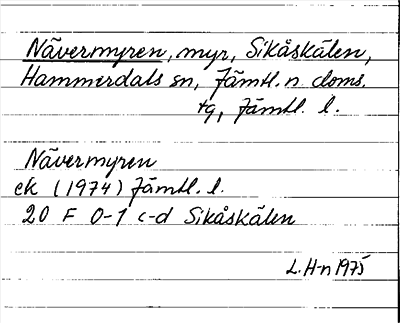 Nävermyren, myr, Sikåskälen,
Hammerdals sn, Jämtl. n. doms.
tg, Jämtl. l.
Nävermyren
ek (1974) Jämtl. l.
20 F 0-1 c-d Sikåskälen
L. H-n 1975